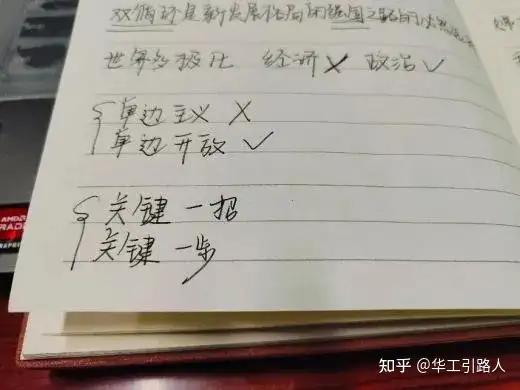 双循环是新发展格局的强国之路的必然选择
世界多极化 经济 ✗ 政治 ✓
单边主义 ✗
单边开放 ✓
关键一招
关键一步
AMD
RADE
GRAPHI
知乎 @华工引路人